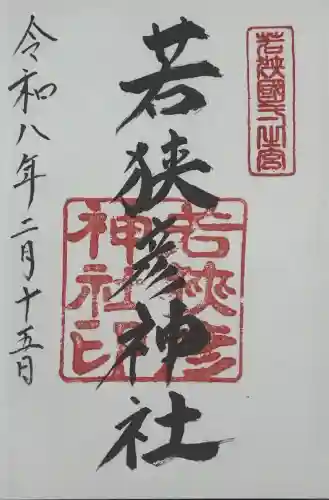 若狭國一之宮
若狭彦神社
若狭彦
神社印
令和八年二月十五日